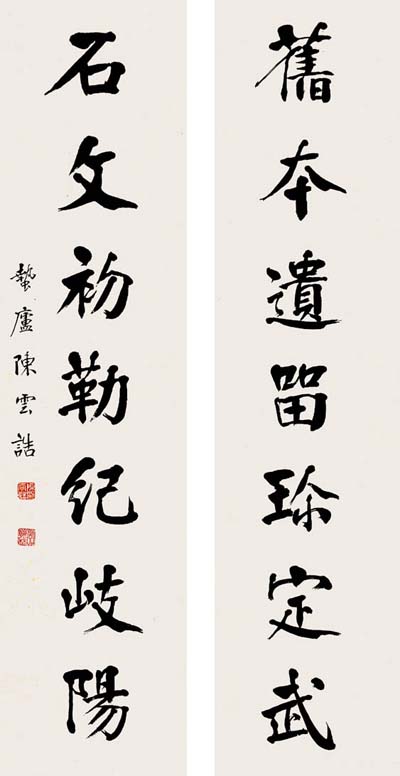 舊本遺留珎定武
石文初勒紀岐陽
蟄廬陳雲誥